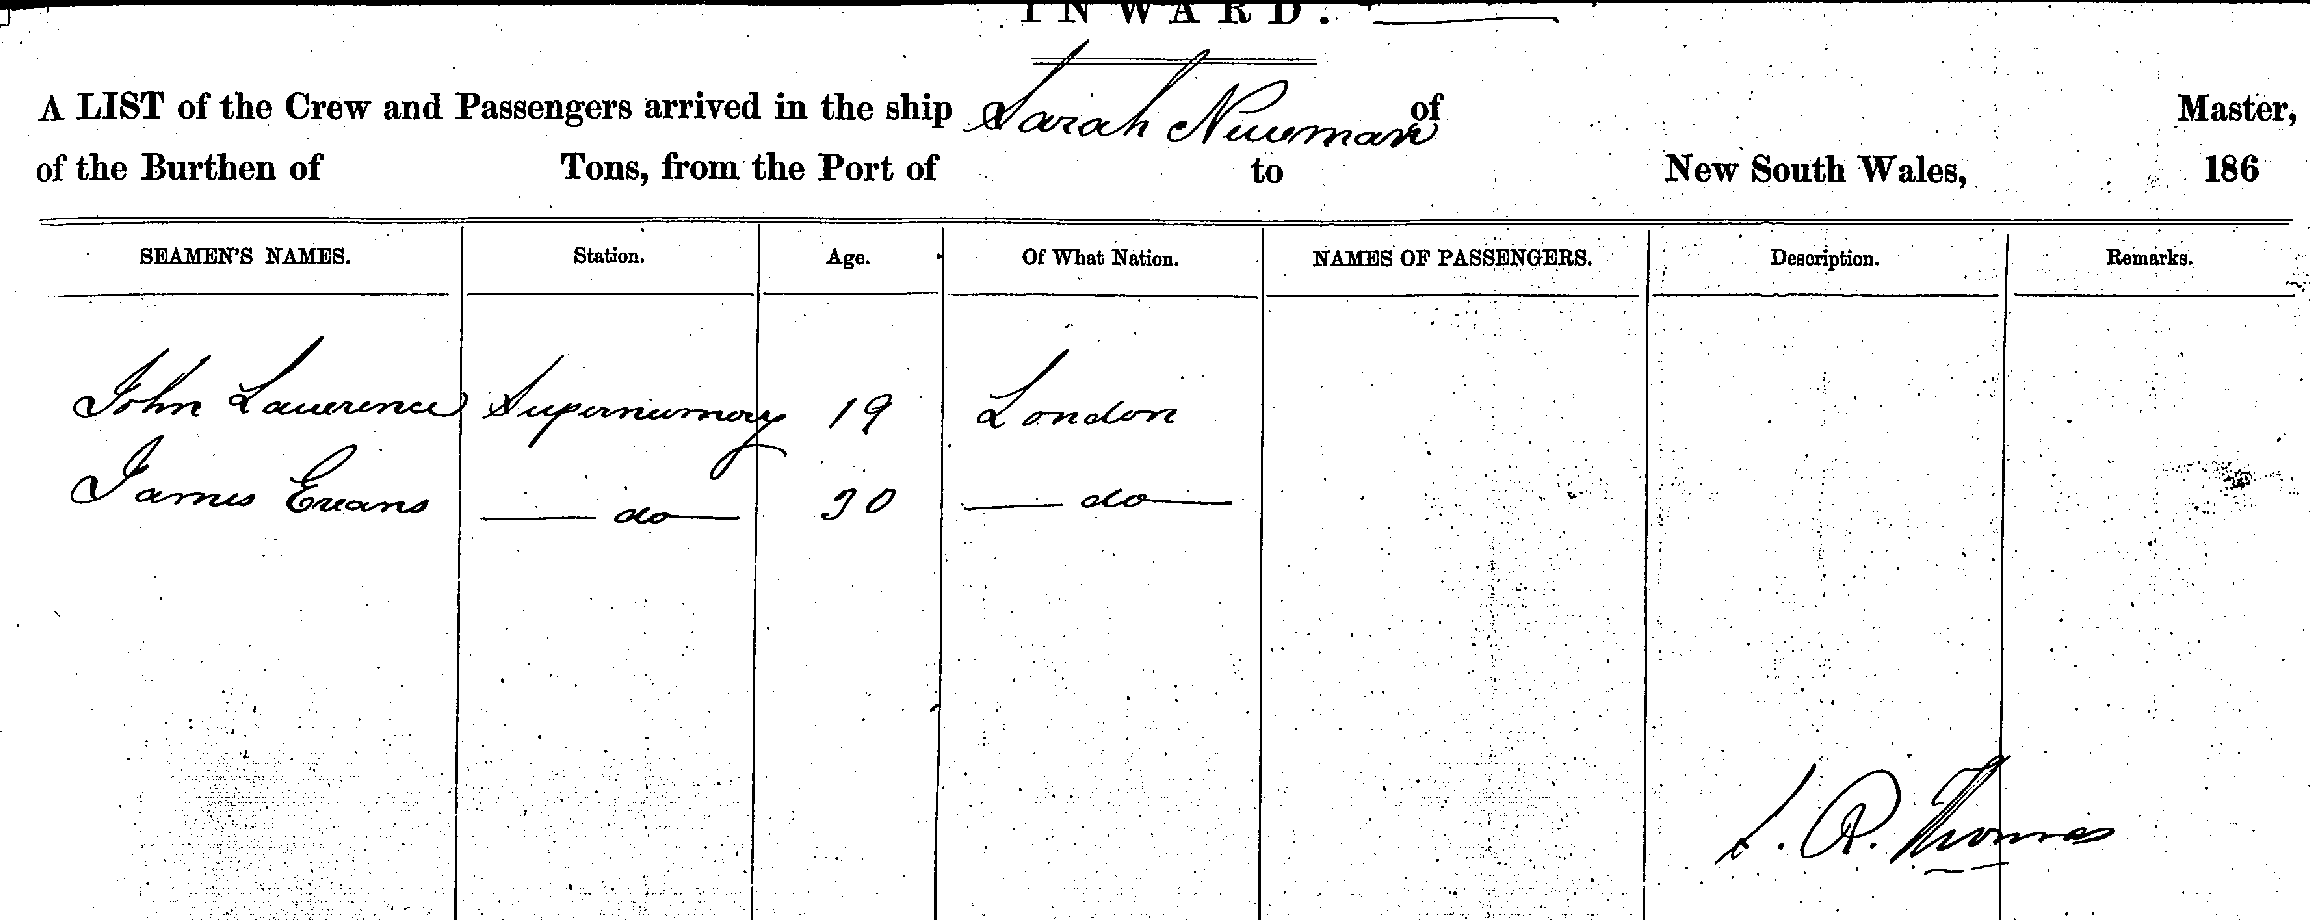 INWARD.
A LIST of the Crew and Passengers arrived in the ship Sarah Newman of Master,
of the Burthen of Tons, from the Port of to New South Wales, 186
SEAMEN'S NAMES. Station. Age. Of What Nation. NAMES OF PASSENGERS. Description. Remarks.
John Lawrence Supernumery 19 London
James Evans do 30 do
R. Thomas